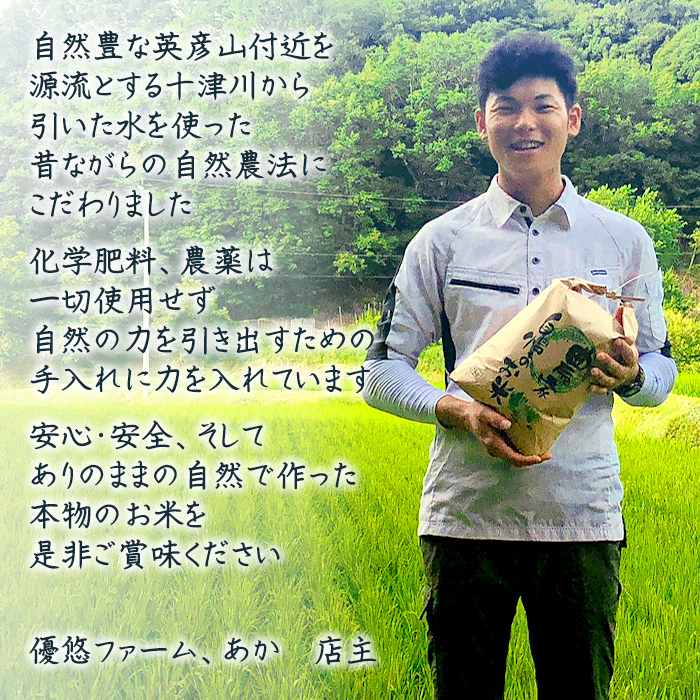 自然豊な英彦山付近を
源流とする十津川から
引いた水を使った
昔ながらの自然農法に
こだわりました
化学肥料、農薬は
一切使用せず
自然の力を引き出すための
手入れに力を入れています
安心・安全、そして
ありのままの自然で作った
本物のお米を
是非ご賞味ください
優悠ファーム、あか　店主